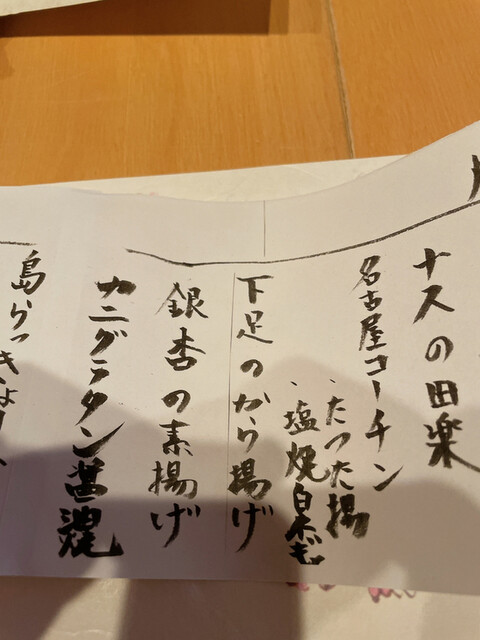 ナスの田楽
名古屋コーチン
、たつた揚
、塩焼
下足のから揚げ
銀杏の素揚げ
カニグラタン
島らっきょ